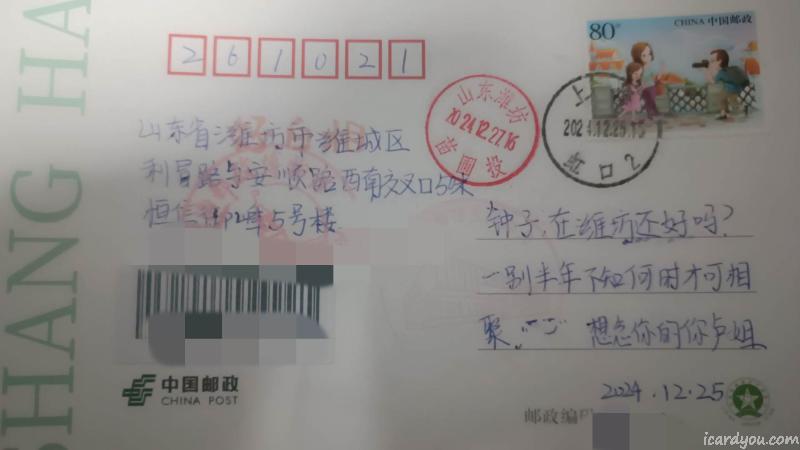 SHANG HA
80分
CHINA 中国邮政
261021
山东潍坊
2024.12.27.16
苗圃投
上
2024.12.25.15
虹口2
山东省潍坊市潍城区
利昌路与安顺路西南交叉口
恒信 5号楼
钟子,在潍坊还好吗?
一别半年不知何时才可相
聚 想念你的你卢姐
2024.12.25
中国邮政
CHINA POST
邮政编
icardyou.com